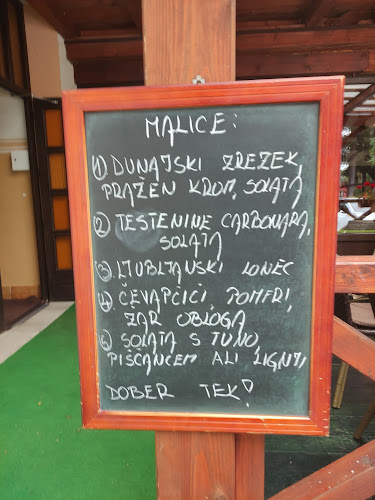 MALICE:
1) DUNAJSKI ZREZEK,
PRAŽEN KROM, SOLATA
2) TESTENINE CARBONARA,
SOLATA
3) LJUBLJANSKI LONEC
4) ČEVAPČIČI, POMFRI,
ŽAR OBLOGA
5) SOLATA S TUNO,
PIŠČANCEM ALI LIGNJI
DOBER TEK!